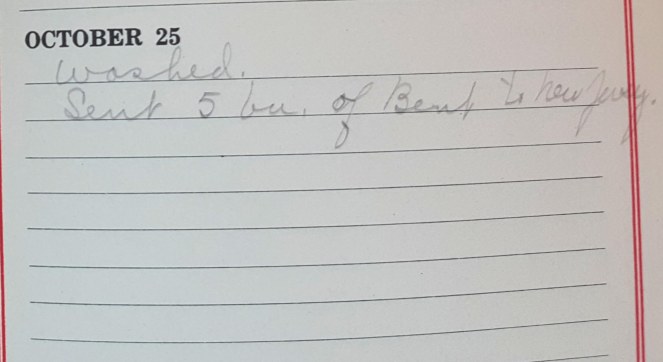 OCTOBER 25
washed.
Sent 5 bu. of Bent to new Jersey.